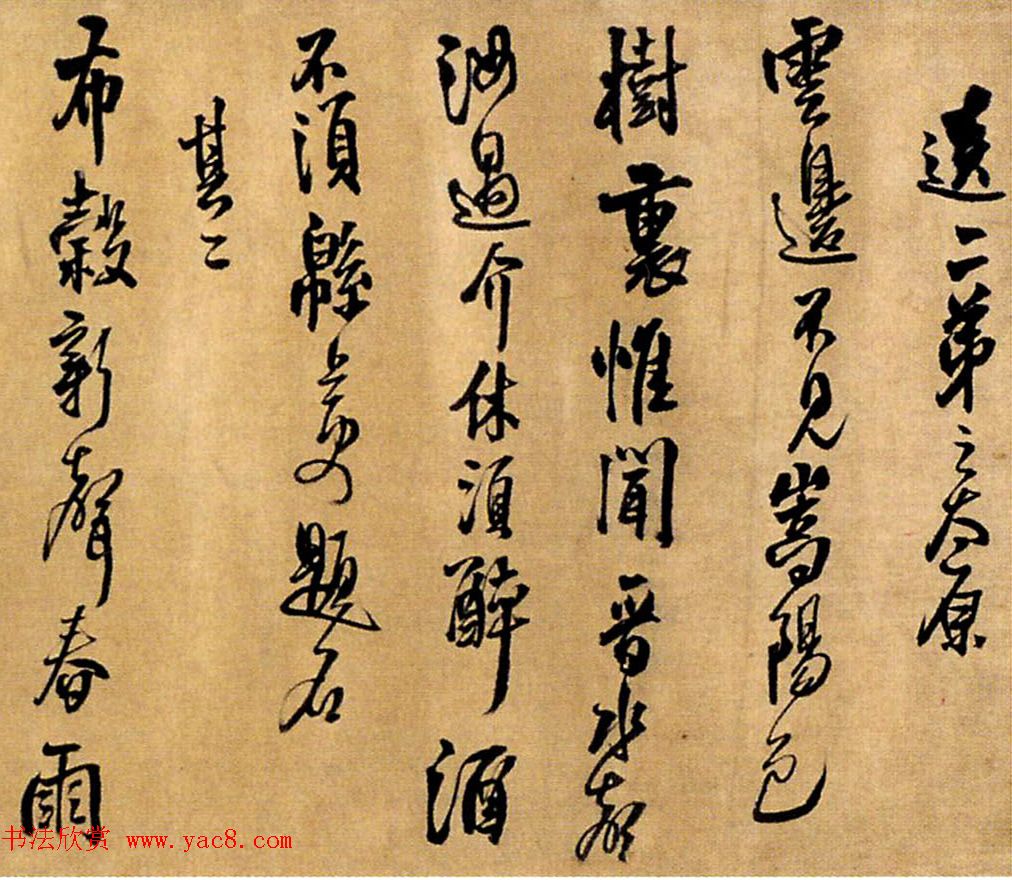 送二弟之太原
雲邊不見嵩陽色
樹裏惟聞晉水聲
汝過介休須醉酒
不須緜上更題名
其二
布穀新聲春雨
书法欣赏 www.yac8.com